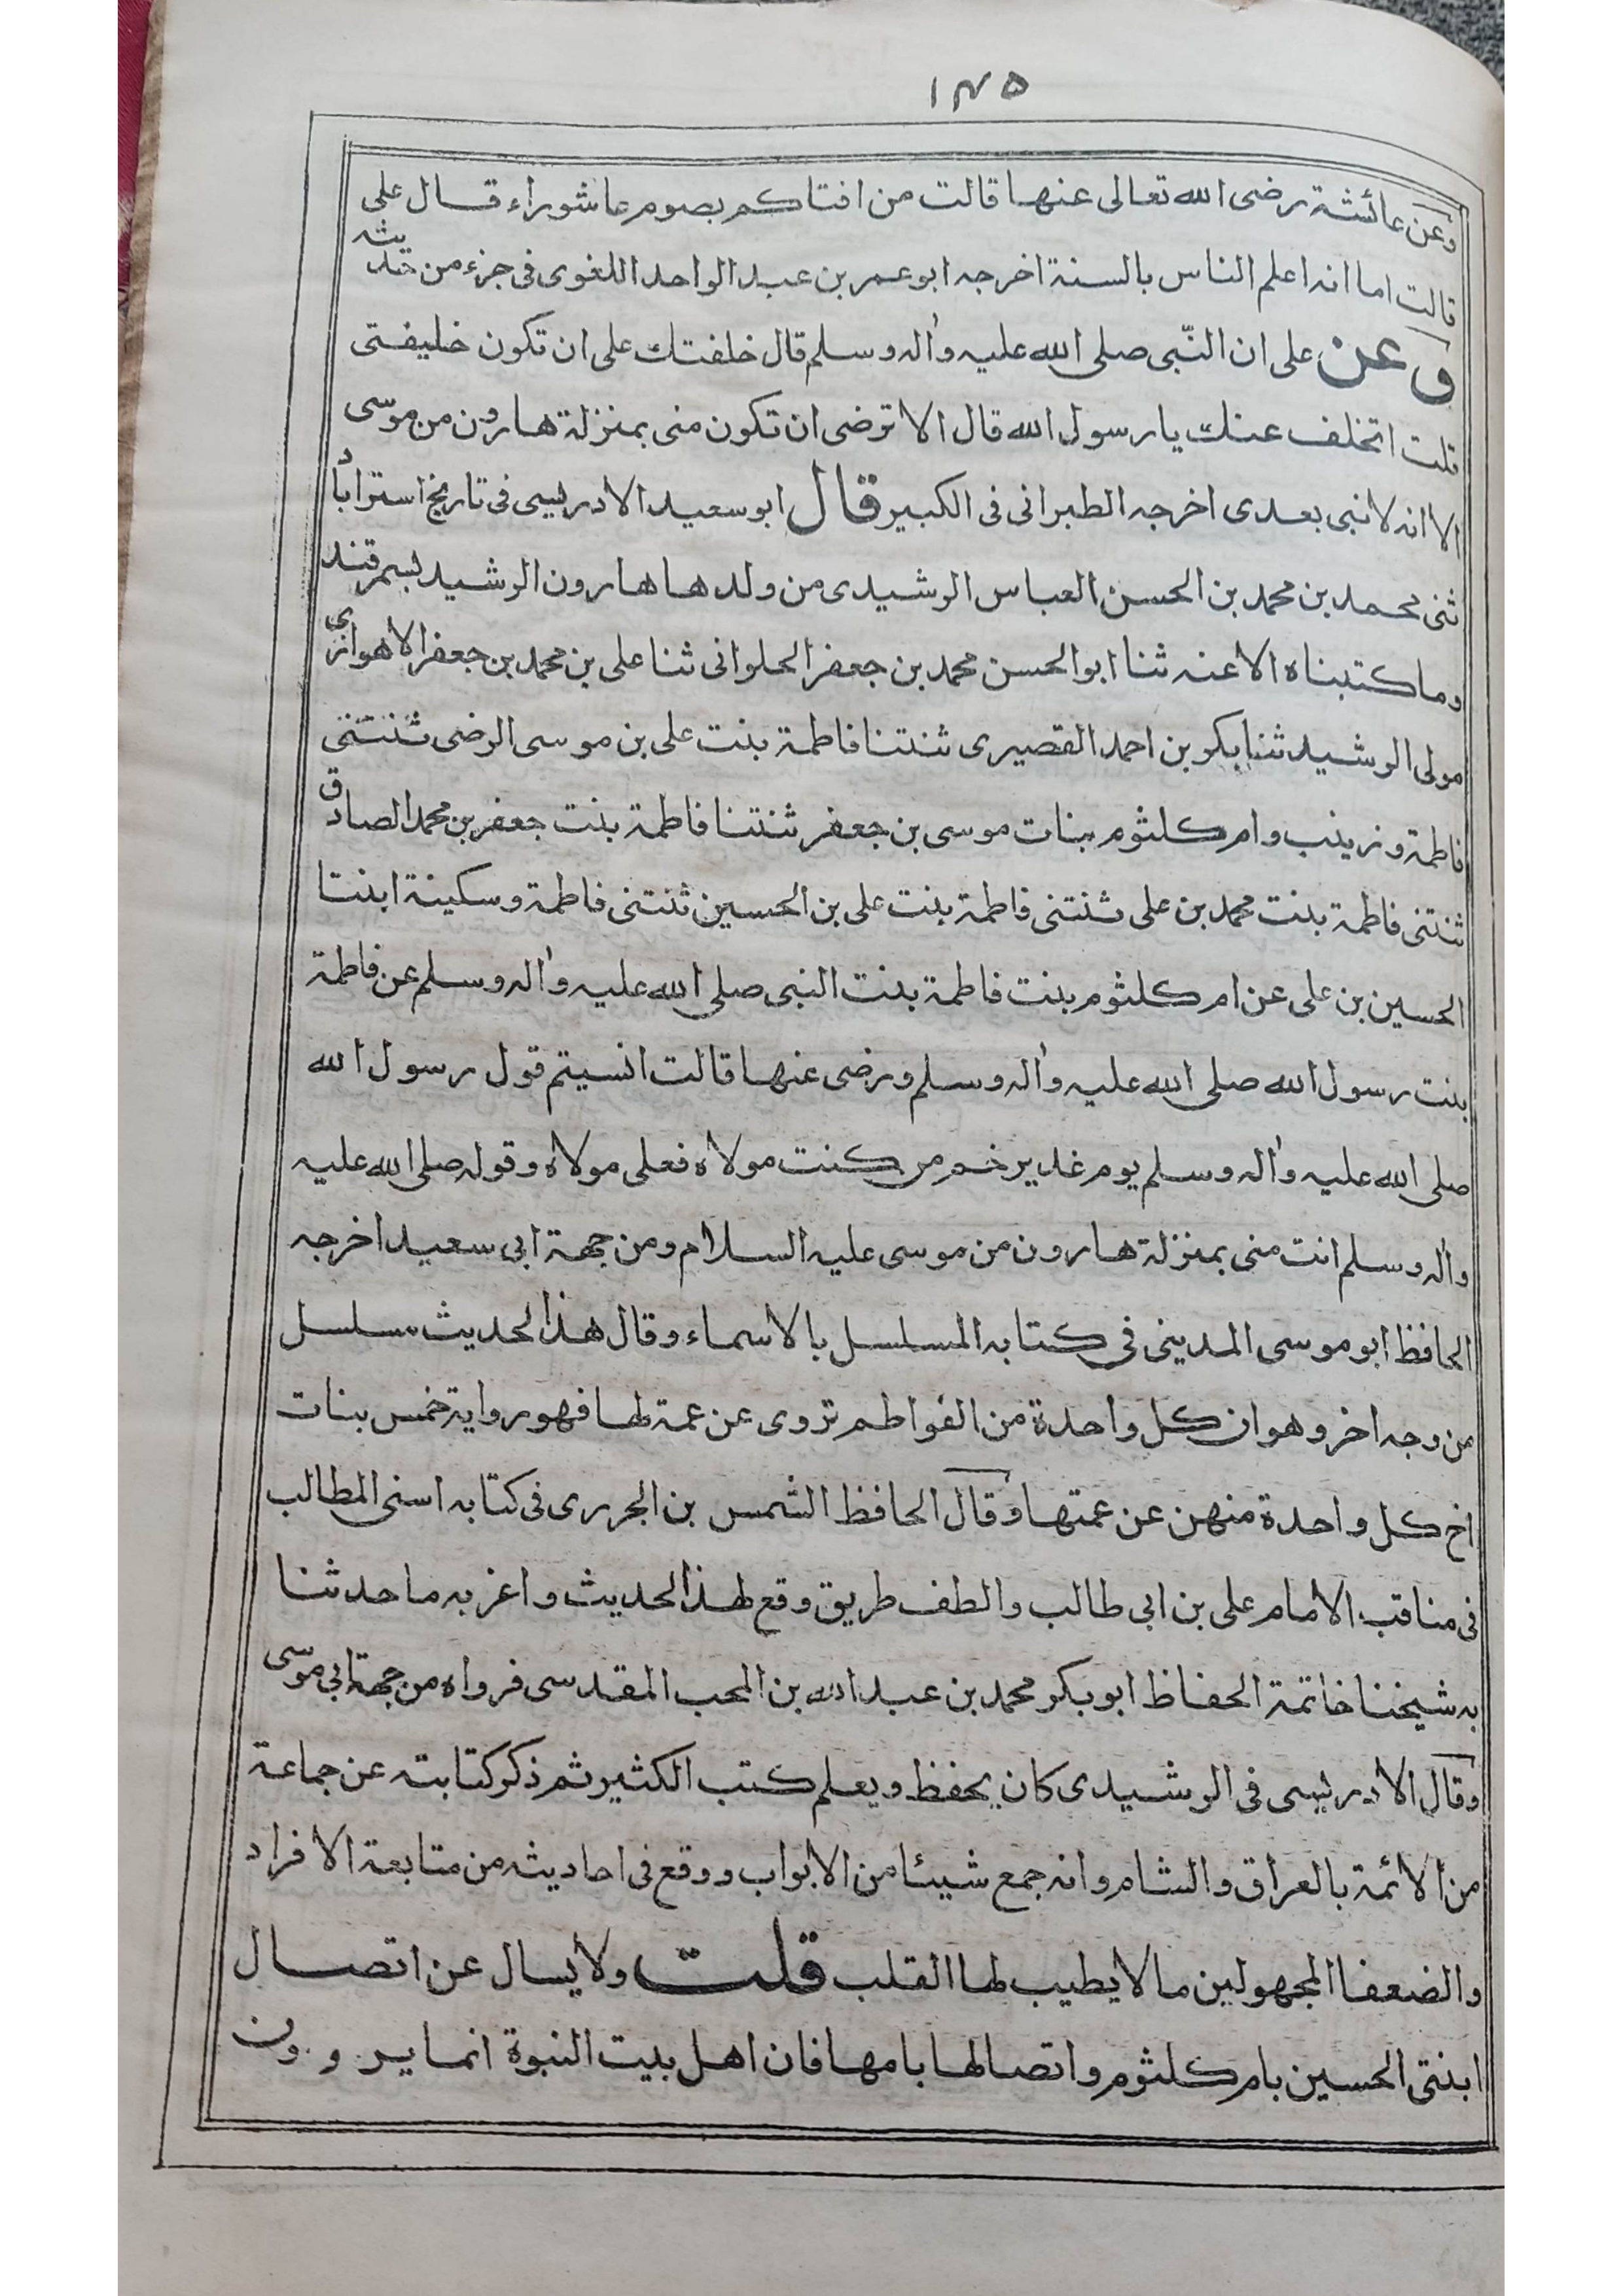 ١٣٥
وعن عائشة رضى الله تعالى عنها قالت من افتاكم بصوم عاشوراء قال على
قالت اما انه اعلم الناس بالسنة اخرجه ابو عمر بن عبد الواحد اللغوى فى جزء من حديثه
وعن على ان النّبى صلى الله عليه واله وسلم قال خلفتك على ان تكون خليفتى
قلت اتخلف عنك يا رسول الله قال الا ترضى ان تكون منى بمنزلة هارون من موسى
الا انه لا نبى بعدى اخرجه الطبرانى فى الكبير قال ابو سعيد الادريسى فى تاريخ استراباد
ثنى محمد بن محمد بن الحسن العباس الرشيدى من ولدها هارون الرشيد بسمرقند
وما كتبناه الا عنه ثنا ابو الحسن محمد بن جعفر الحلوانى ثنا على بن محمد بن جعفر الاهوازى
مولى الرشيد ثنا بكر بن احمد القصيرى ثنتنا فاطمة بنت على بن موسى الرضى ثنتنى
فاطمة وزينب وام كلثوم بنات موسى بن جعفر ثنتنا فاطمة بنت جعفر بن محمد الصادق
ثنتنى فاطمة بنت محمد بن على ثنتنى فاطمة بنت على بن الحسين ثنتنى فاطمة وسكينة ابنتا
الحسين بن على عن ام كلثوم بنت فاطمة بنت النبى صلى الله عليه واله وسلم عن فاطمة
بنت رسول الله صلى الله عليه واله وسلم ورضى عنها قالت انسيتم قول رسول الله
صلى الله عليه واله وسلم يوم غدير خم من كنت مولاه فعلى مولاه وقوله صلى الله عليه
واله وسلم انت منى بمنزلة هارون من موسى عليه السلام ومن جهة ابى سعيد اخرجه
الحافظ ابو موسى المدينى فى كتابه المسلسل بالاسماء وقال هذا الحديث مسلسل
من وجه اخر وهو ان كل واحدة من الفواطم تروى عن عمة لها فهو رواية خمس بنات
اخ كل واحدة منهن عن عمتها وقال الحافظ الشمس بن الجررى فى كتابه اسنى المطالب
فى مناقب الامام على بن ابى طالب والطف طريق وقع لهذا الحديث واغربه ما حدثنا
به شيخنا خاتمة الحفاظ ابو بكر محمد بن عبد الله بن المحب المقدسى فرواه من جهة ابى موسى
وقال الادريسى فى الرشيدى كان يحفظ ويعلم كتب الكثير ثم ذكر كتابته عن جماعة
من الائمة بالعراق والشام وانه جمع شيئا من الابواب ووقع فى احاديثه من متابعة الافراد
والضعفا المجهولين ما لا يطيب لها القلب قلت ولا يسال عن اتصال
ابنتى الحسين بام كلثوم واتصالها بامها فان اهل بيت النبوة انما يروون